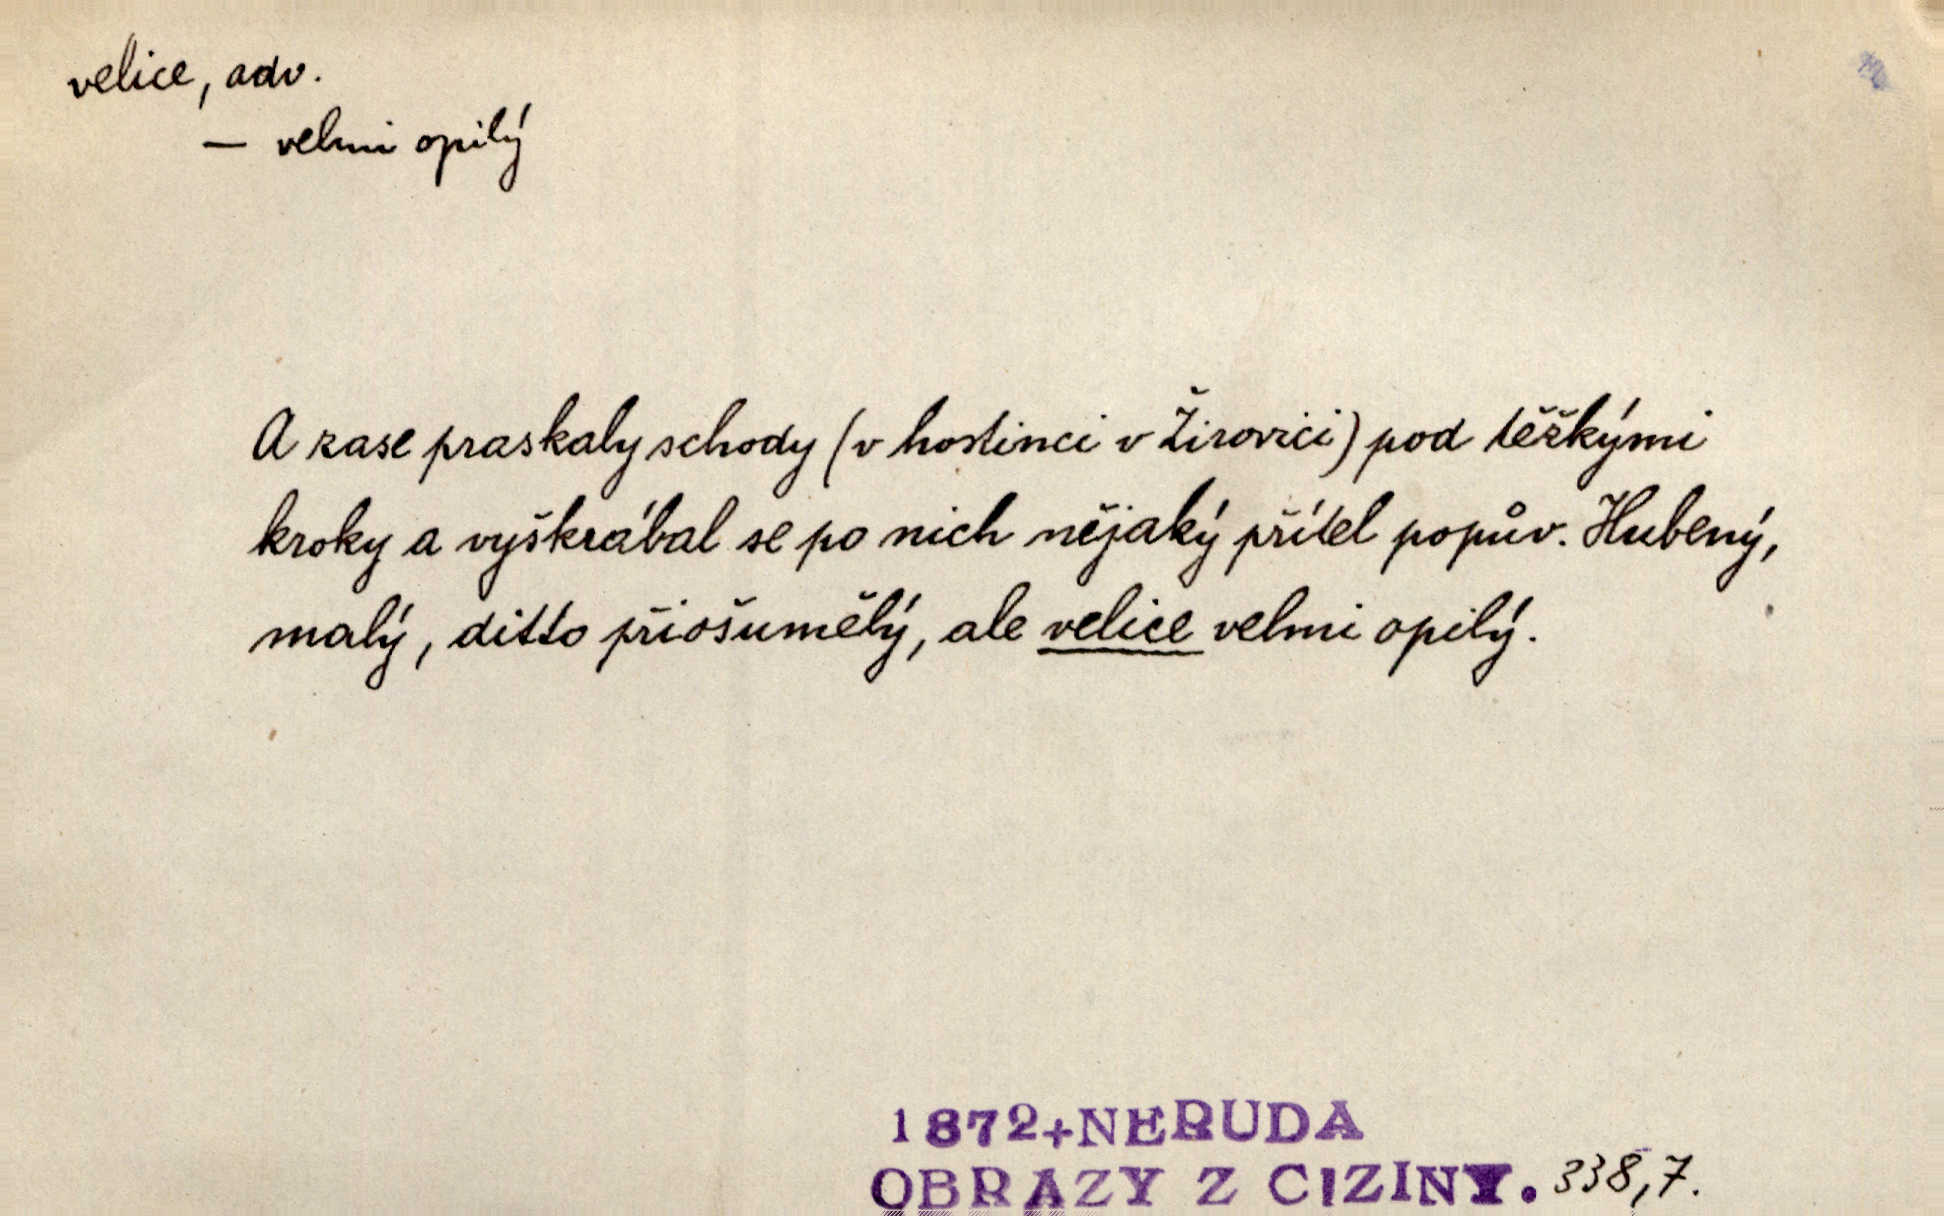 velice, adv.
— velmi opilý
A zase praskaly schody (v hostinci v Žirovici) pod těžkými
kroky a vyškrábal se po nich nějaký přítel popův. Hubený,
malý, ditto přiošumělý, ale velice velmi opilý.
1872+NERUDA
OBRAZY Z CIZINY. 338,7.